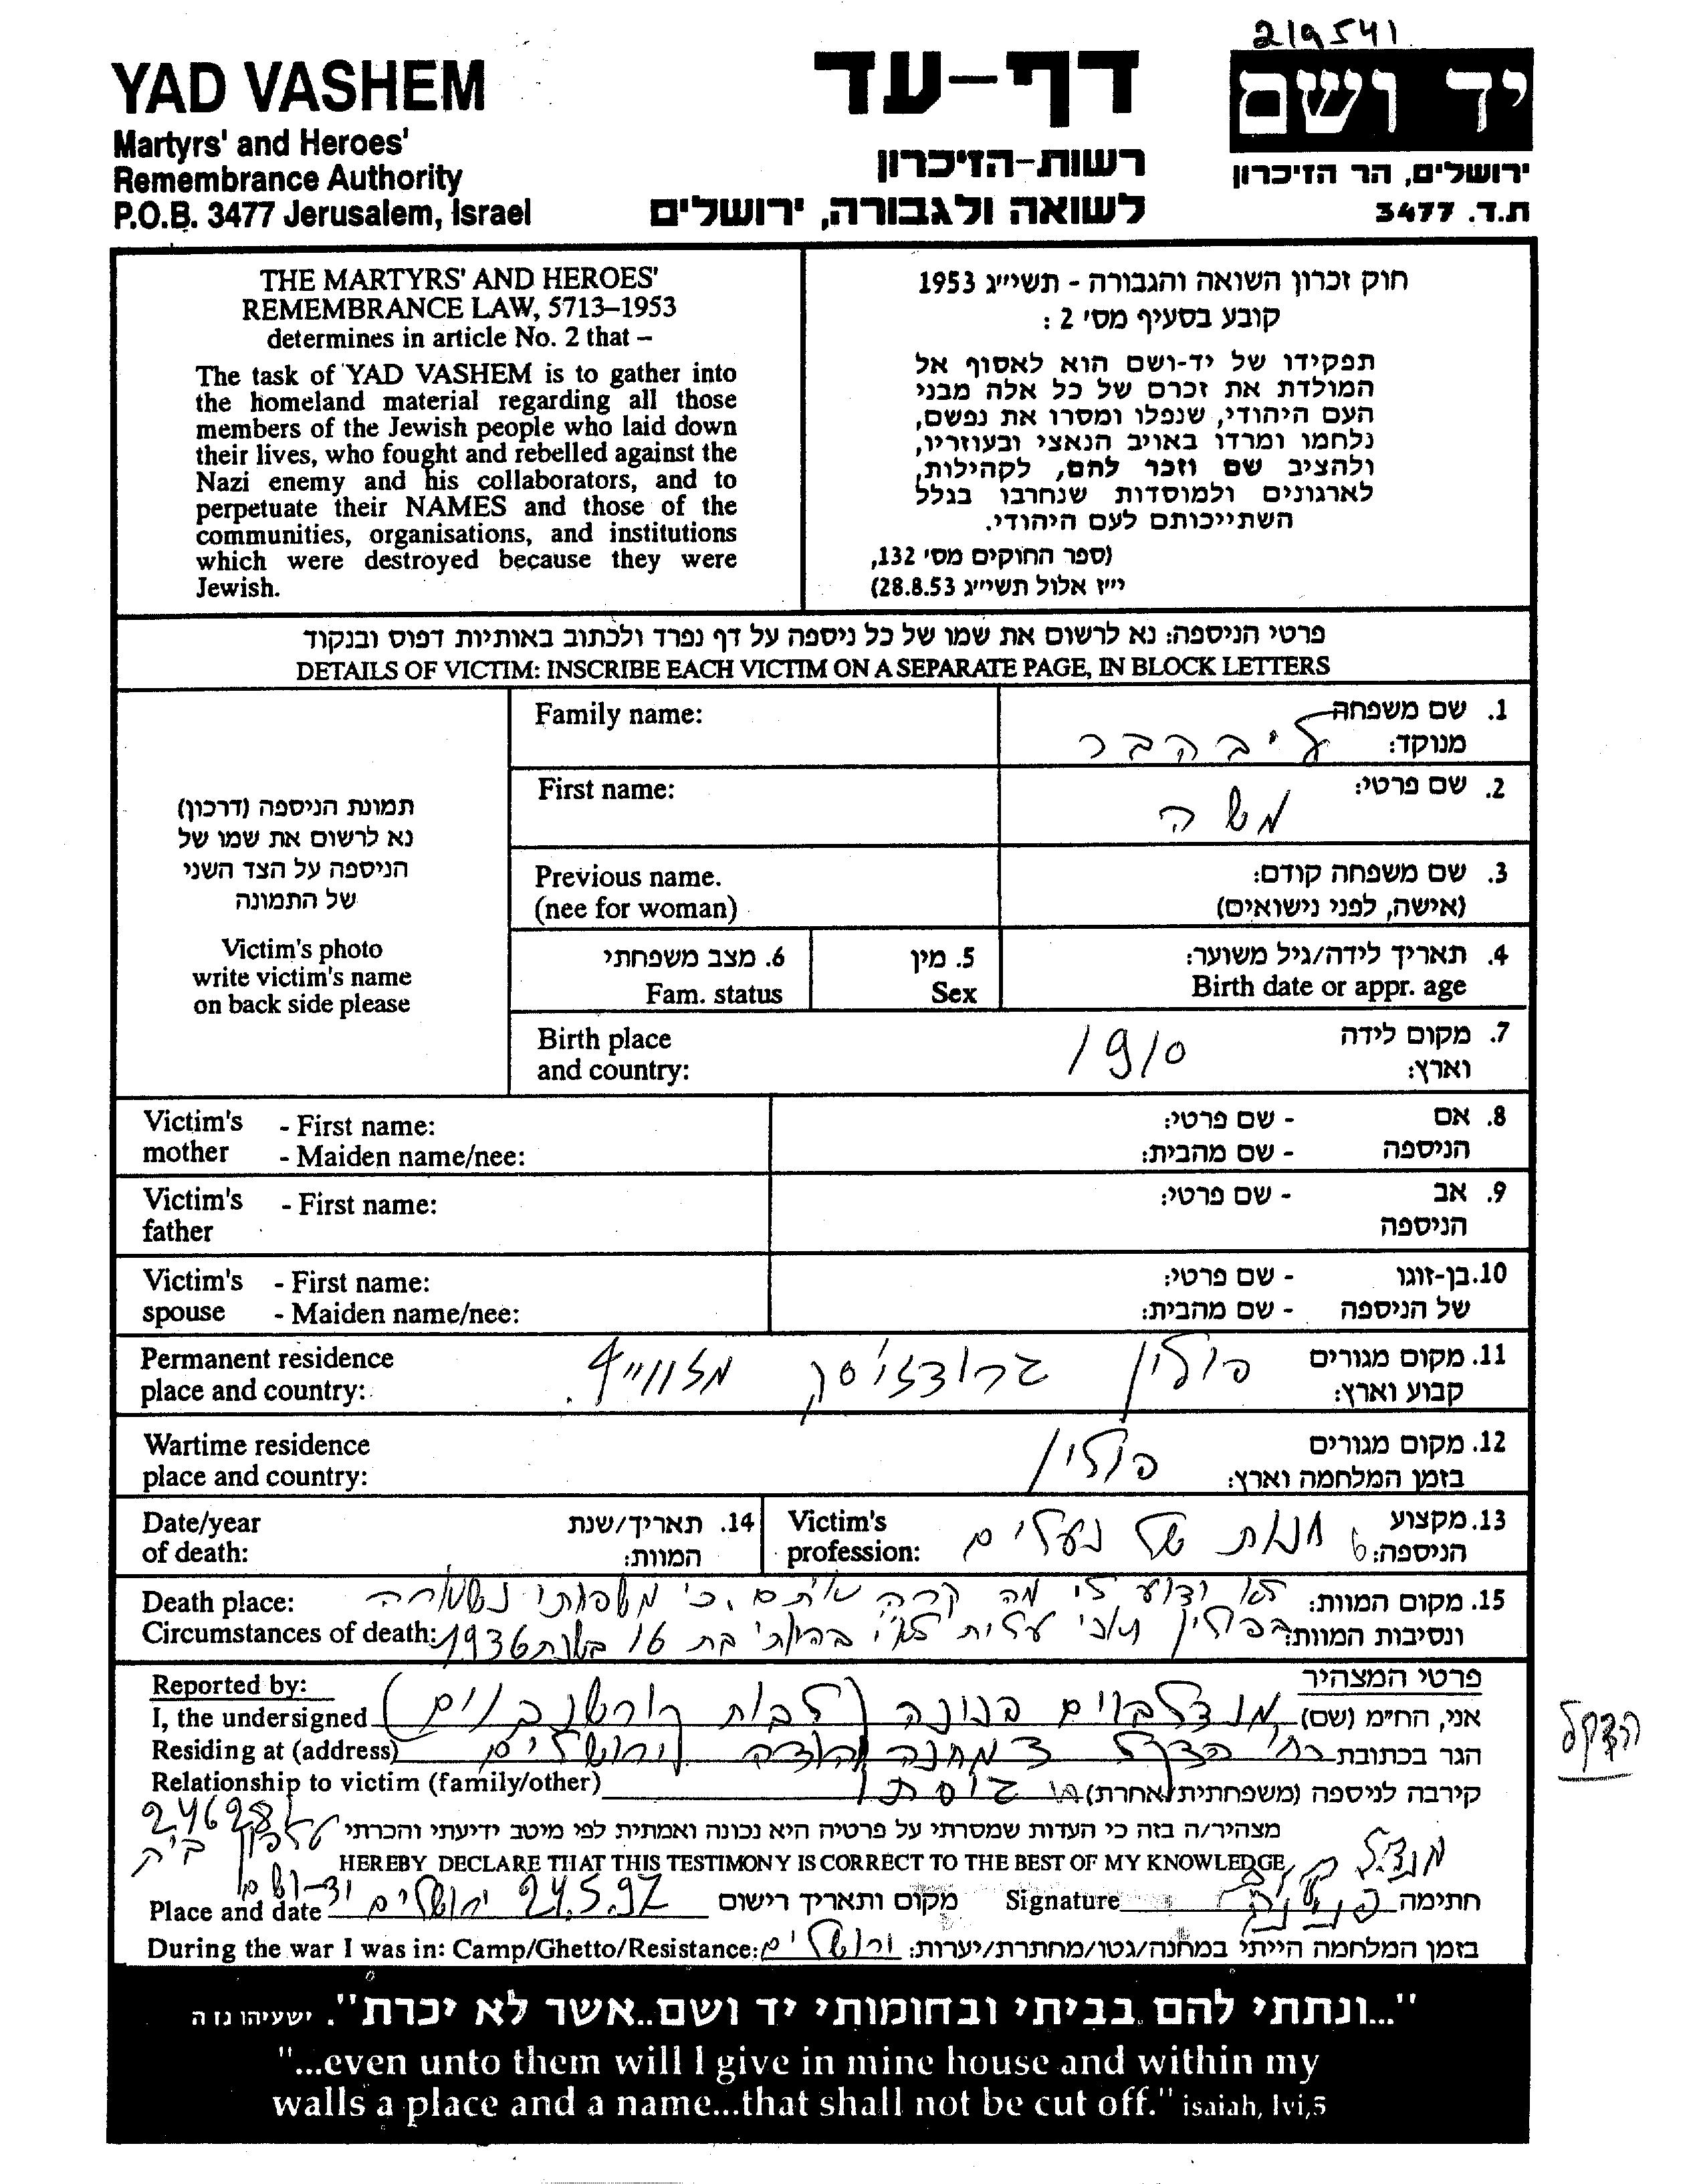 219541
YAD VASHEM
Martyrs' and Heroes'
Remembrance Authority
P.O.B. 3477 Jerusalem, Israel
דף-עד
רשות-הזיכרון
לשואה ולגבורה, ירושלים
יד ושם
ירושלים, הר הזיכרון
ת.ד. 3477
THE MARTYRS' AND HEROES'
REMEMBRANCE LAW, 5713–1953
determines in article No. 2 that –
The task of YAD VASHEM is to gather into
the homeland material regarding all those
members of the Jewish people who laid down
their lives, who fought and rebelled against the
Nazi enemy and his collaborators, and to
perpetuate their NAMES and those of the
communities, organisations, and institutions
which were destroyed because they were
Jewish.
חוק זכרון השואה והגבורה - תשי״ג 1953
קובע בסעיף מס׳ 2 :
תפקידו של יד-ושם הוא לאסוף אל
המולדת את זכרם של כל אלה מבני
העם היהודי, שנפלו ומסרו את נפשם,
נלחמו ומרדו באויב הנאצי ובעוזריו,
ולהציב שם וזכר להם, לקהילות,
לארגונים ולמוסדות שנחרבו בגלל
השתייכותם לעם היהודי.
(ספר החוקים מס׳ 132,
י״ז אלול תשי״ג 28.8.53)
פרטי הניספה: נא לרשום את שמו של כל ניספה על דף נפרד ולכתוב באותיות דפוס ובנקוד
DETAILS OF VICTIM: INSCRIBE EACH VICTIM ON A SEPARATE PAGE, IN BLOCK LETTERS
תמונת הניספה (דרכון)
נא לרשום את שמו של
הניספה על הצד השני
של התמונה
Victim's photo
write victim's name
on back side please
Family name:
1. שם משפחה
מנוקד: ליבהבר
First name:
2. שם פרטי:
משה
Previous name.
(nee for woman)
3. שם משפחה קודם:
(אישה, לפני נישואים)
6. מצב משפחתי
Fam. status
5. מין
Sex
4. תאריך לידה/גיל משוער:
Birth date or appr. age
Birth place
and country:
1910
7. מקום לידה
וארץ:
Victim's - First name:
mother - Maiden name/nee:
8. אם - שם פרטי:
הניספה - שם מהבית:
Victim's - First name:
father
9. אב - שם פרטי:
הניספה
Victim's - First name:
spouse - Maiden name/nee:
10. בן-זוגו - שם פרטי:
של הניספה - שם מהבית:
Permanent residence
place and country:
11. מקום מגורים
קבוע וארץ:
פולין
Wartime residence
place and country:
12. מקום מגורים
בזמן המלחמה וארץ:
פולין
Date/year
of death:
14. תאריך/שנת
המוות:
Victim's
profession:
13. מקצוע
הניספה:
חנות של נעלים
Death place:
Circumstances of death:
15. מקום המוות: לא ידוע לי מה קרה איתם. כי משפחתי נשארה
ונסיבות המוות: בפולין ואני עליתי לא״י בהיותי בת 16 בשנת 1936
Reported by:
פרטי המצהיר
I, the undersigned
אני, הח״מ (שם) מנדלבוים פנינה (לבית
Residing at (address)
הגר בכתובת רח׳ הדקל 3 מחנה יהודה ירושלים
הדקל
Relationship to victim (family/other)
קירבה לניספה (משפחתית/אחרת)
24628
טלפון
מצהיר/ה בזה כי העדות שמסרתי על פרטיה היא נכונה ואמתית לפי מיטב ידיעתי והכרתי
HEREBY DECLARE THAT THIS TESTIMONY IS CORRECT TO THE BEST OF MY KNOWLEDGE
Place and date
24.5.92 ירושלים יד-ושם
מקום ותאריך רישום
Signature
חתימה
פנינה
During the war I was in: Camp/Ghetto/Resistance:
ירושלים
בזמן המלחמה הייתי במחנה/גטו/מחתרת/יערות:
"...ונתתי להם בביתי ובחומותי יד ושם..אשר לא יכרת". ישעיהו נז ה
"...even unto them will I give in mine house and within my
walls a place and a name...that shall not be cut off." isaiah, lvi,5